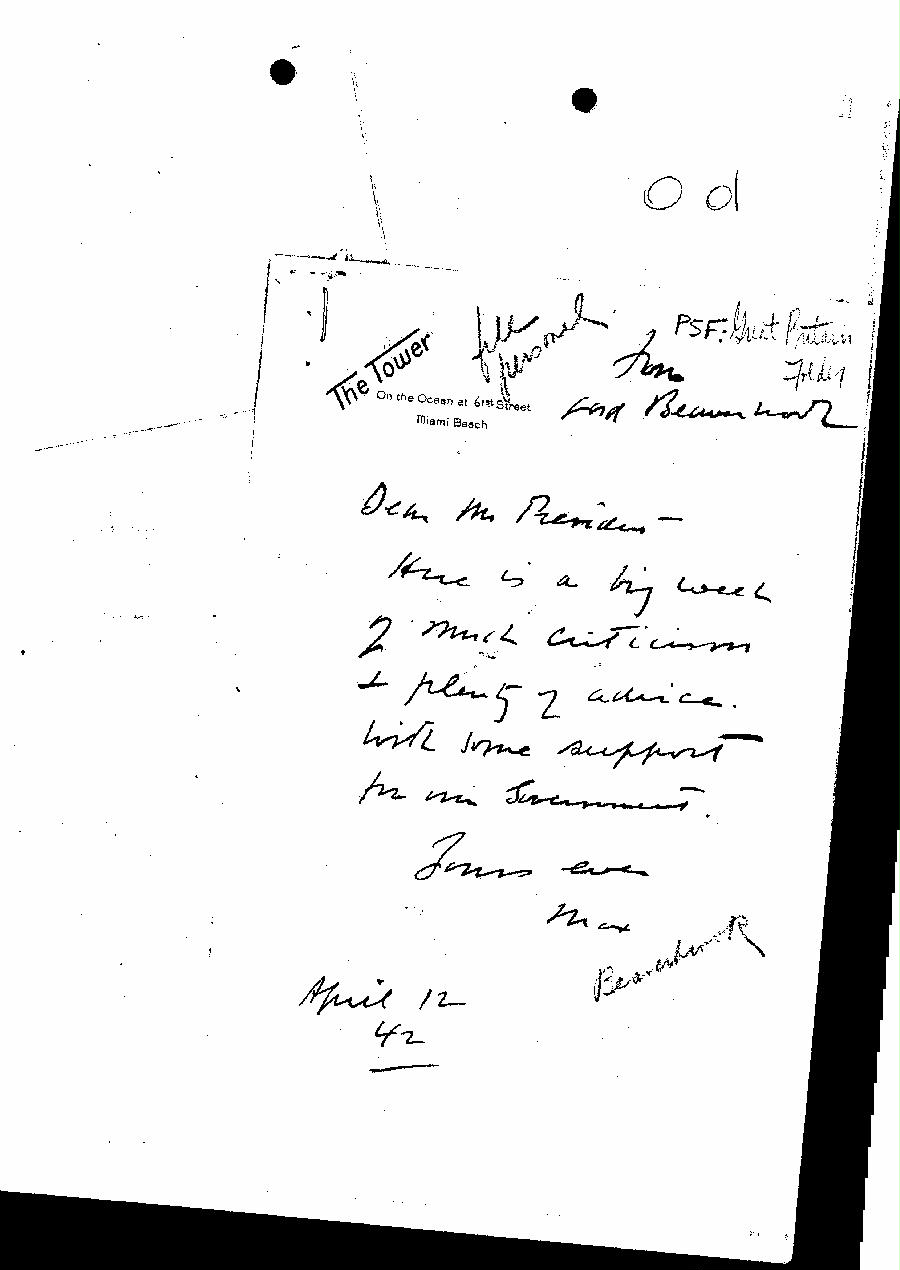 O d
file
personal
PSF: Great Britain
Folder
from
Lord Beaverbrook
The Tower
On the Ocean at 61st Street
Miami Beach
Dear Mr President —
Here is a big week
of much criticism
& plenty of advice.
with some support
for our Government.
Yours ever
Max
Beaverbrook
April 12
42